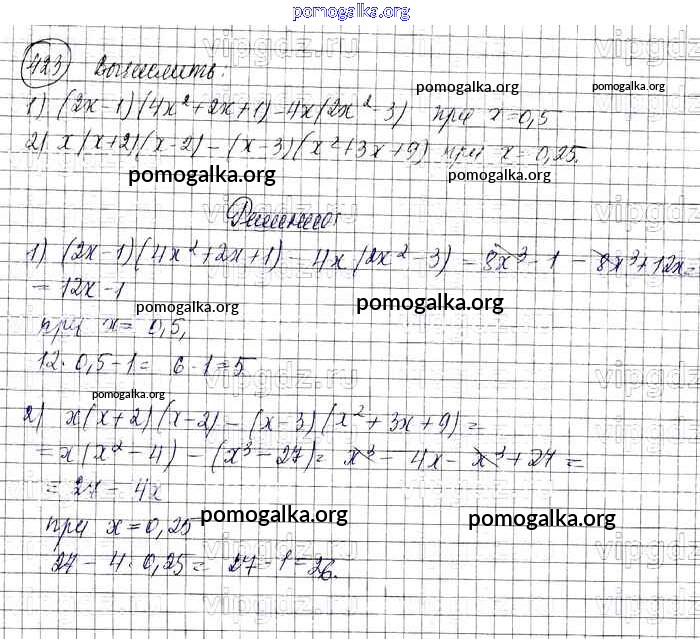 pomogalka.org
423 Вычислить:
pomogalka.org pomogalka.org
1) (2x-1)(4x²+2x+1)-4x(2x²-3) при x=0,5
2) x(x+2)(x-2)-(x-3)(x²+3x+9) при x=0,25.
pomogalka.org pomogalka.org
Решение:
1) (2x-1)(4x²+2x+1)-4x(2x²-3)=8x³-1-8x³+12x=
=12x-1
pomogalka.org pomogalka.org
при x=0,5,
12·0,5-1=6-1=5.
pomogalka.org
2) x(x+2)(x-2)-(x-3)(x²+3x+9)=
=x(x²-4)-(x³-27)=x³-4x-x³+27=
=27-4x
pomogalka.org pomogalka.org
при x=0,25
27-4·0,25=27-1=26.
vipgdz.ru